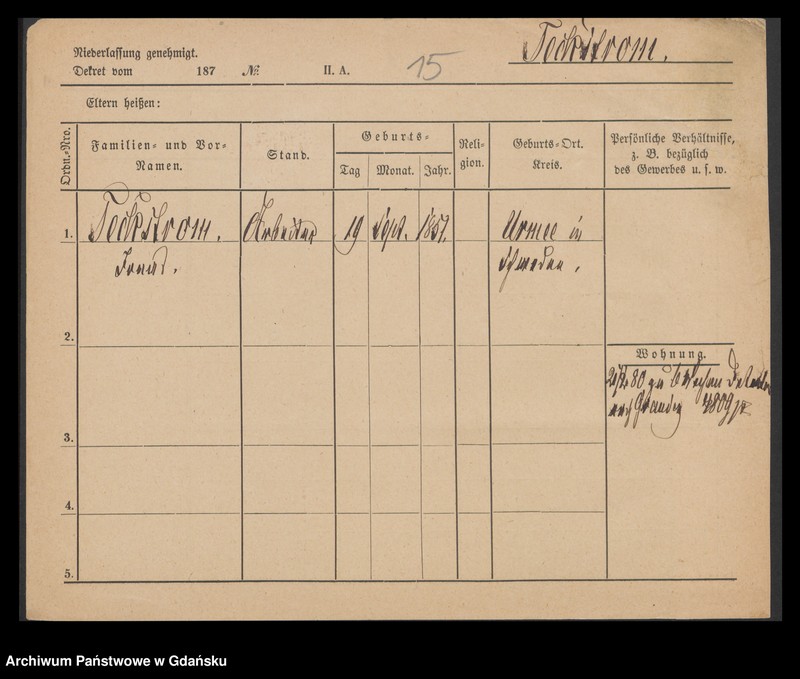 Teckstrom.
Niederlassung genehmigt.
Dekret vom 187 № II. A. 15
Eltern heißen:
Ordn.-Nro.
Familien- und Vor-
Namen.
Stand.
Geburts-
Tag Monat. Jahr.
Reli-
gion.
Geburts-Ort.
Kreis.
Persönliche Verhältnisse,
z. B. bezüglich
des Gewerbes u. s. w.
1. Teckstrom. Arbeiter 19 Sept. 1851. Urmee in
Schweden.
2.
Wohnung.
80 zu 6 Wochen
nach
3.
4.
5.
Archiwum Państwowe w Gdańsku